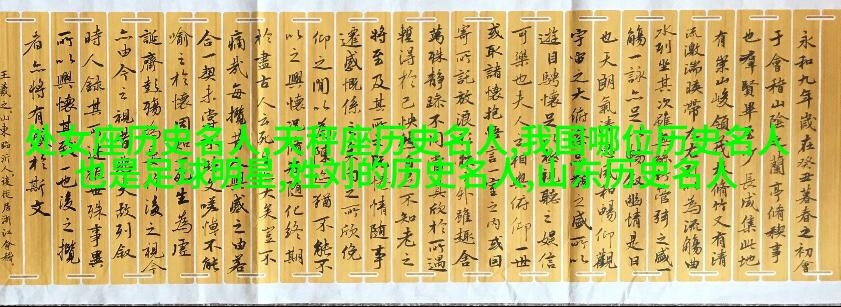 处女座历史名人,天秤座历史名人,我国哪位历史名人
也是足球明星,姓刘的历史名人,山东历史名人
永和九年歲在癸丑暮春之初會
于會稽山陰蘭亭脩稧事
也群賢畢少長咸集此地
有崇山峻領脩竹又有清
流激湍暎帶左為流觴曲
水列坐其次雖管弦之盛一
觴一詠亦足以幽情是日
也天朗氣清和暢仰觀
宇宙之大俯之盛所以
遊目騁懷足視聽之娛信
可樂也夫人之相俯仰一世
或取諸懷抱之內或因
寄所託放浪外雖趣舍
萬殊靜躁不同其欣於所遇
暫得於己快不知老之
將至及其所情隨事
遷感慨係之所欣俛
仰之閒以為猶不能不
以之興懷況隨化終期
於盡古人云大矣豈不
痛哉每攬昔感之由若
合一契未嘗嗟悼不能
喻之於懷固知生為虛
誕齊彭殤為後之視今
亦由今之視昔故列敘
時人錄其所世殊事異
所以興懷其致一也後之攬
者亦將有於斯文
王羲之山東臨沂人後徙居浙江會稽